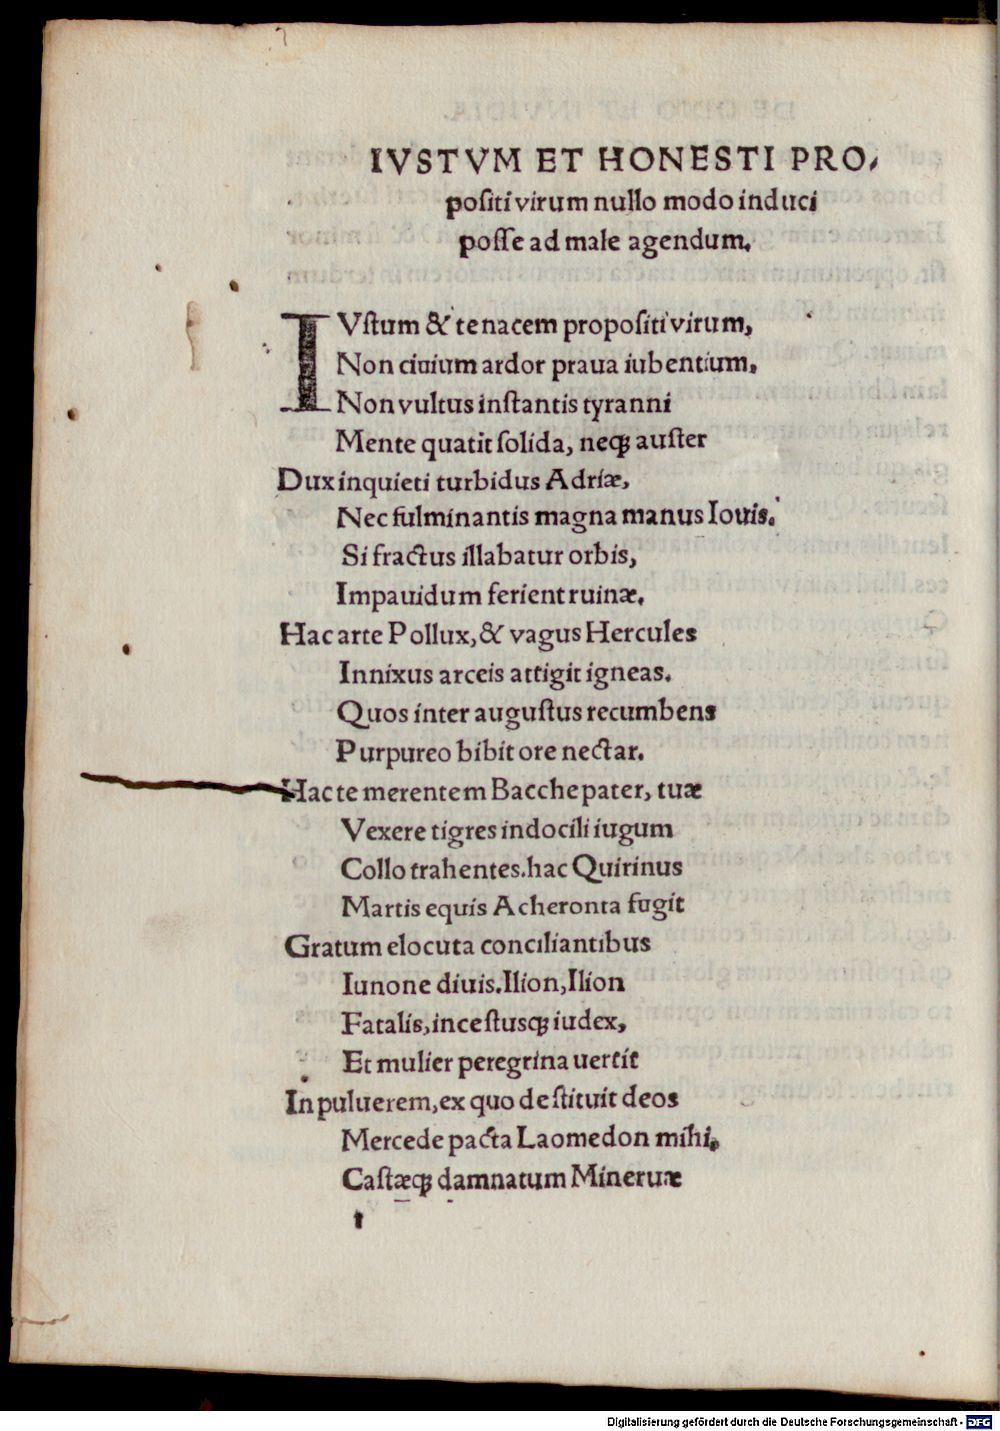 IVSTVM ET HONESTI PRO,
positi virum nullo modo induci
posse ad male agendum.
IVstum & tenacem propositi virum,
Non ciuium ardor praua iubentium,
Non vultus instantis tyranni
Mente quatit solida, neqȝ auster
Dux inquieti turbidus Adriæ,
Nec fulminantis magna manus Iouis.
Si fractus illabatur orbis,
Impauidum ferient ruinæ.
Hac arte Pollux, & vagus Hercules
Innixus arceis attigit igneas.
Quos inter augustus recumbens
Purpureo bibit ore nectar.
Hac te merentem Bacche pater, tuæ
Vexere tigres indocili iugum
Collo trahentes. hac Quirinus
Martis equis Acheronta fugit
Gratum elocuta conciliantibus
Iunone diuis. Ilion, Ilion
Fatalis, incestusqȝ iudex,
Et mulier peregrina uertit
In puluerem, ex quo destituit deos
Mercede pacta Laomedon mihi,
Castæqȝ damnatum Mineruæ
Digitalisierung gefördert durch die Deutsche Forschungsgemeinschaft - DFG